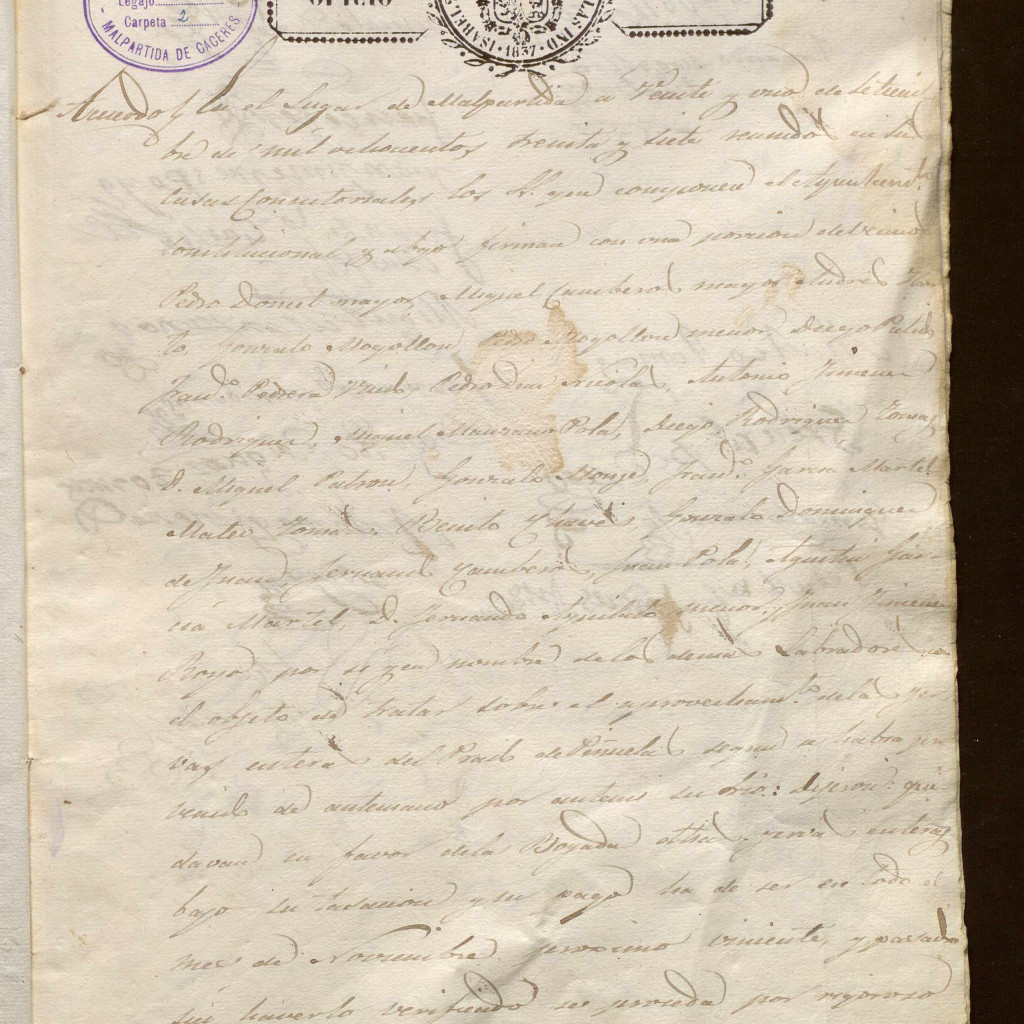 Legajo
Carpeta 2
MALPARTIDA DE CACERES
OFICIO
ISABEL
LAS IND
1837
Acuerdo / En el Lugar de Malpartida a Veinte y uno de Setiem
bre de mil ochocientos treinta y siete reunidos en sus
Casas Consistoriales los S.es que componen el Ayuntam.to
Constitucional y abajo firman con una porcion de vecinos
Pedro Domil mayor, Miguel Cambero mayor Andres
to Gonzalo Mogollon, Mogollon menor, Diego Pulido
Fran.co Pedrera Vivas, Pedro Diaz Nicolas, Antonio Jimenez
Rodriguez, Miguel Manzano Pola, Diego Rodriguez Tomas
D. Miguel Patron, Gonzalo Monge, Fran.co Garcia Martel
Mateo Tomas, Benito Chaves, Gonzalo Dominguez
de Juan, Fernando Cambero, Juan Pola, Agustin Gar
cia Martel, D. Fernando menor, y Juan Jimenez
Royo por si y en nombre de los demas Labradores con
el objeto de tratar sobre el aprovecham.to de las yer
vas entera del Prado de Piñuela segun se habra pre
venido de antemano por antemi su Srio: dijeron: que
davan en favor de la Boyada otra yerva entera
bajo su tasacion y su pago ha de ser en todo el
mes de Noviembre proximo viniente, y pasado
sin haverlo verificado se proceda por rigoroso